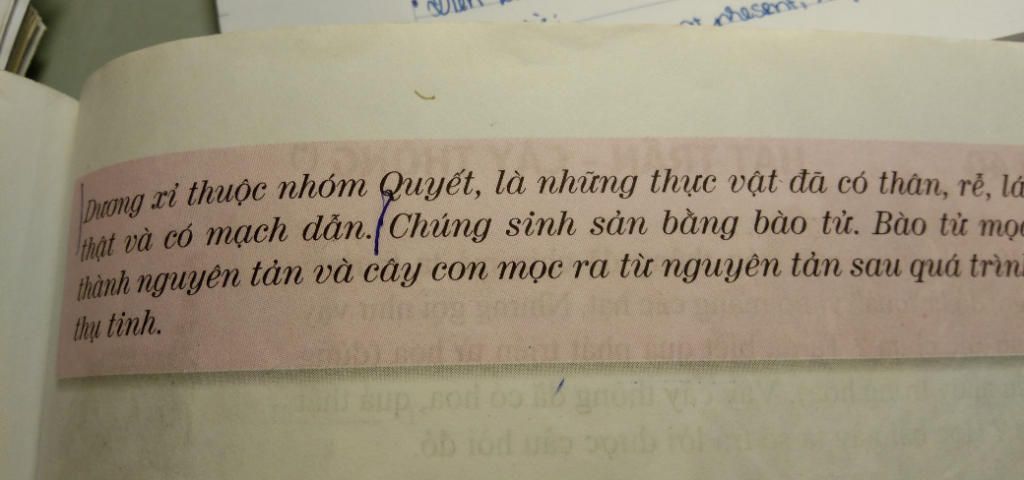 present,
Dương xỉ thuộc nhóm Quyết, là những thực vật đã có thân, rễ, lá
thật và có mạch dẫn. Chúng sinh sản bằng bào tử. Bào tử mọc
thành nguyên tản và cây con mọc ra từ nguyên tản sau quá trình
thụ tinh.